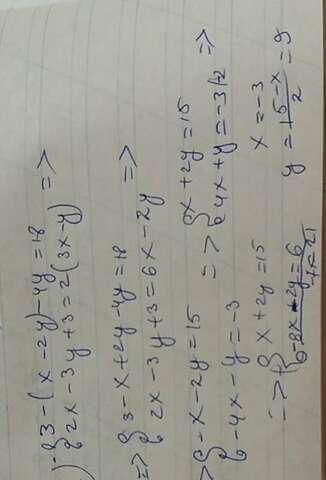 ) { 3-(x-2y)-4y=18 =>
{ 2x-3y+3=2(3x-y)
=> { 3-x+2y-4y=18 =>
{ 2x-3y+3=6x-2y
=> { -x-2y=15 => { x+2y=15
{ -4x-y=-3 { 4x+y=-3 |·2 =>
=> { x+2y=15 x=-3
y=\frac{15-x}{2}=9